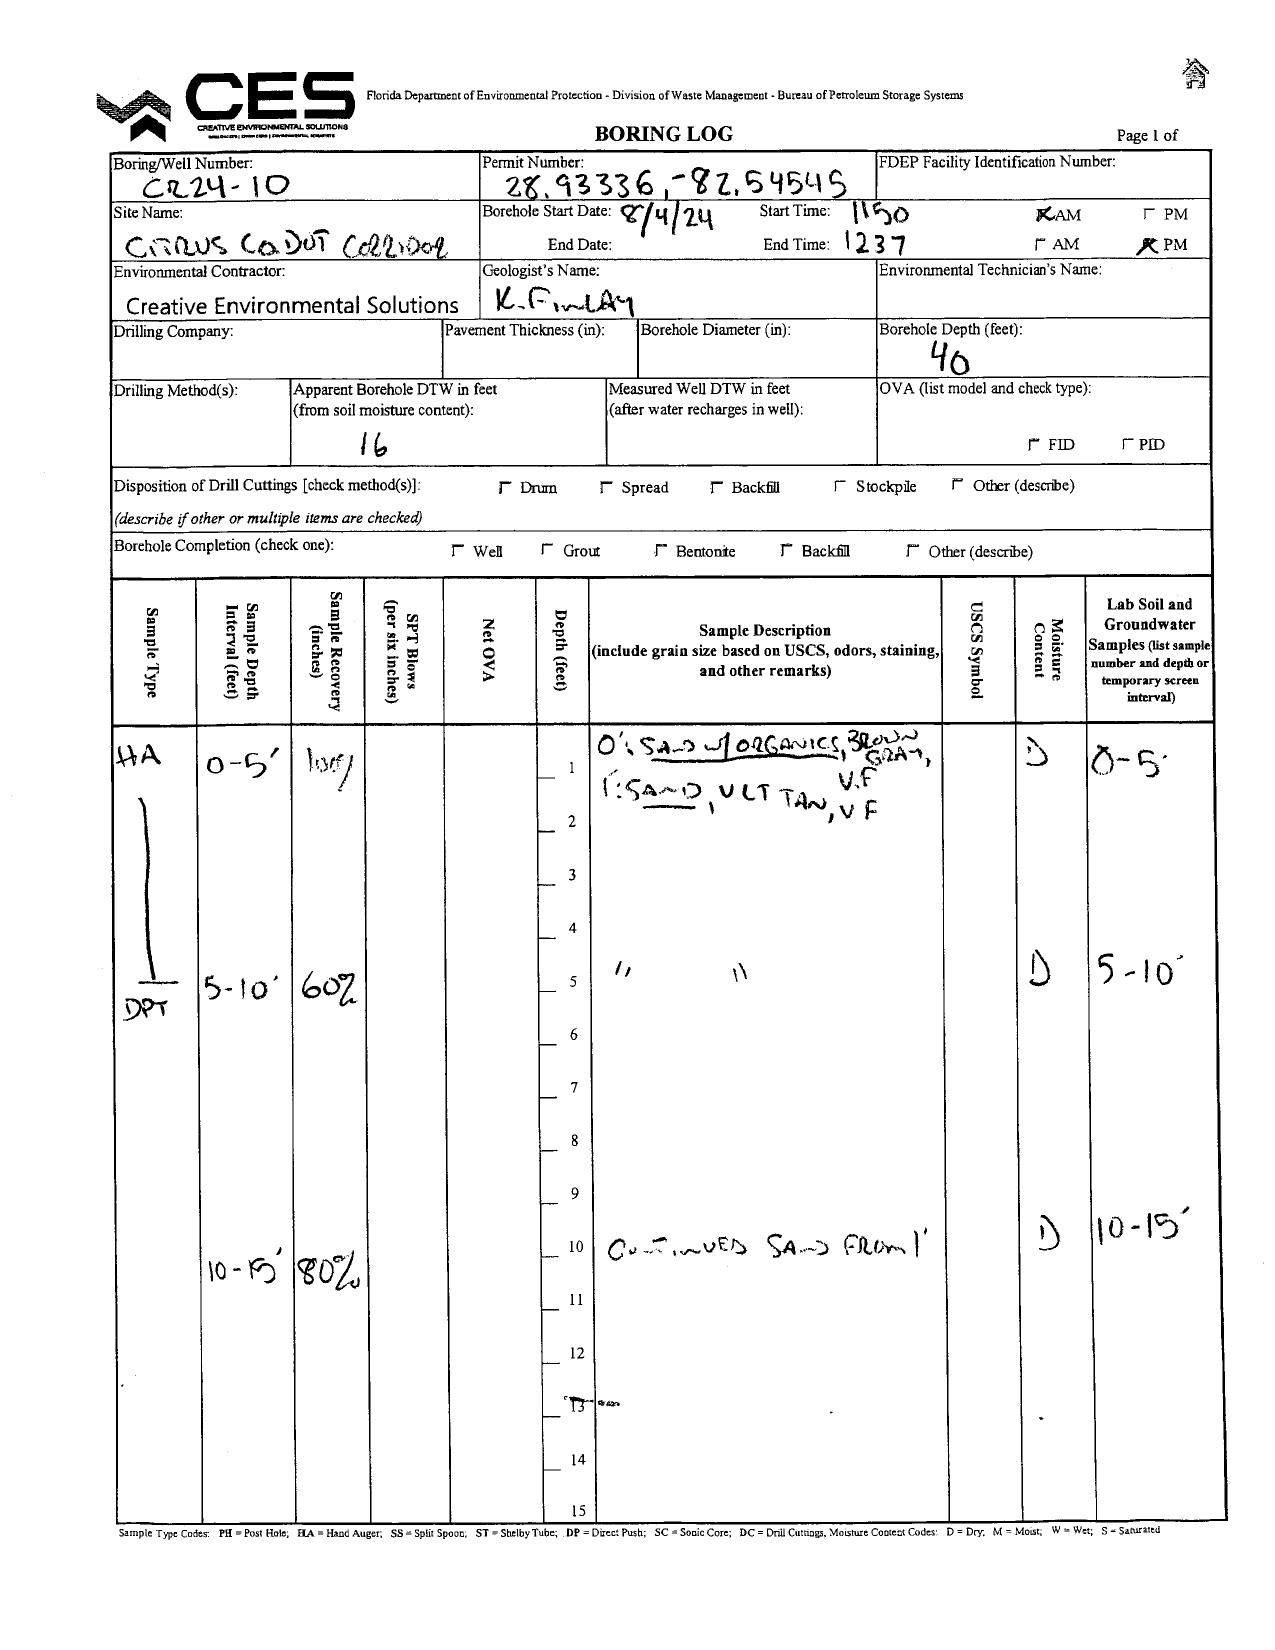 CES
CREATIVE ENVIRONMENTAL SOLUTIONS
Florida Department of Environmental Protection - Division of Waste Management - Bureau of Petroleum Storage Systems
BORING LOG
Page 1 of
Boring/Well Number:
CR24-10
Permit Number:
28.93336, -82.54545
FDEP Facility Identification Number:
Site Name:
CITRUS CO DOT CORRIDOR
Borehole Start Date: 8/4/24 Start Time: 1150 AM PM
End Date: End Time: 1237 AM PM
Environmental Contractor:
Creative Environmental Solutions
Geologist's Name:
K. FINLAY
Environmental Technician's Name:
Drilling Company:
Pavement Thickness (in):
Borehole Diameter (in):
Borehole Depth (feet):
40
Drilling Method(s):
Apparent Borehole DTW in feet
(from soil moisture content):
16
Measured Well DTW in feet
(after water recharges in well):
OVA (list model and check type):
FID PID
Disposition of Drill Cuttings [check method(s)]: Drum Spread Backfill Stockpile Other (describe)
(describe if other or multiple items are checked)
Borehole Completion (check one): Well Grout Bentonite Backfill Other (describe)
Sample Type
Sample Depth
Interval (feet)
Sample Recovery
(inches)
SPT Blows
(per six inches)
Net OVA
Depth (feet)
Sample Description
(include grain size based on USCS, odors, staining,
and other remarks)
USCS Symbol
Moisture
Content
Lab Soil and
Groundwater
Samples (list sample
number and depth or
temporary screen
interval)
HA 0-5' 0': SAND w/ ORGANICS, BROWN
GRAY, V.F D 0-5'
1
1': SAND, V LT TAN, V F
2
3
4
5-10' 60% 5 " " D 5-10'
DPT
6
7
8
9
10-15' 80% 10 CONTINUED SAND FROM 1' D 10-15'
11
12
13
14
15
Sample Type Codes: PH = Post Hole; HA = Hand Auger; SS = Split Spoon; ST = Shelby Tube; DP = Direct Push; SC = Sonic Core; DC = Drill Cuttings, Moisture Content Codes: D = Dry; M = Moist; W = Wet; S = Saturated